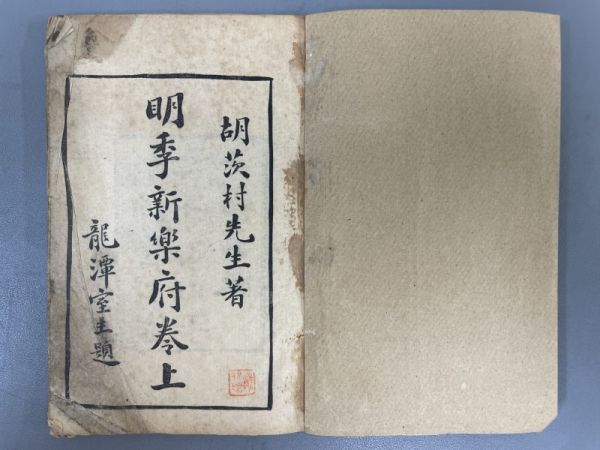 胡茨村先生著
明季新樂府卷上
龍潭室主題